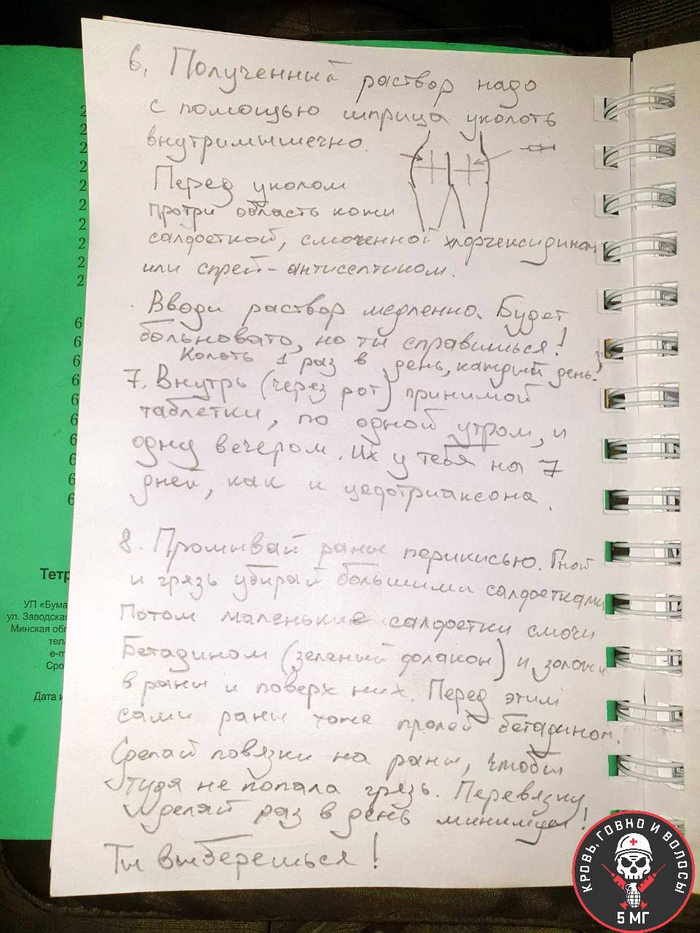 6. Полученный раствор надо
с помощью шприца уколоть
внутримышечно.
Перед уколом
протри область кожи
салфеткой, смоченной хлоргексидином
или спрей-антисептиком.
Вводи раствор медленно. Будет
больновато, но ты справишься!
Колоть 1 раз в день, каждый день!
7. Внутрь (через рот) принимой
таблетки, по одной утром, и
одну вечером. Их у тебя на 7
дней, как и цефтриаксона.
8. Промывай раны перикисью. Гной
и грязь убирай большими салфетками
Потом маленькие салфетки смочи
Бетадином (зеленый флакон) и заложи
в раны и поверх них. Перед этим
сами раны тоже пролей бетадином.
Сделай повязки на раны, чтобы
туда не попала грязь. Перевязку
делай раз в день минимум!
Ты выберешься!
2
2
2
2
2
2
2
2
6
6
6
6
6
6
6
6
Тетр
УП «Бума
ул. Заводская
Минская обл
тел
e-m
Сро
Дата и
КРОВЬ, ГОВНО И ВОЛОСЫ
5 МГ